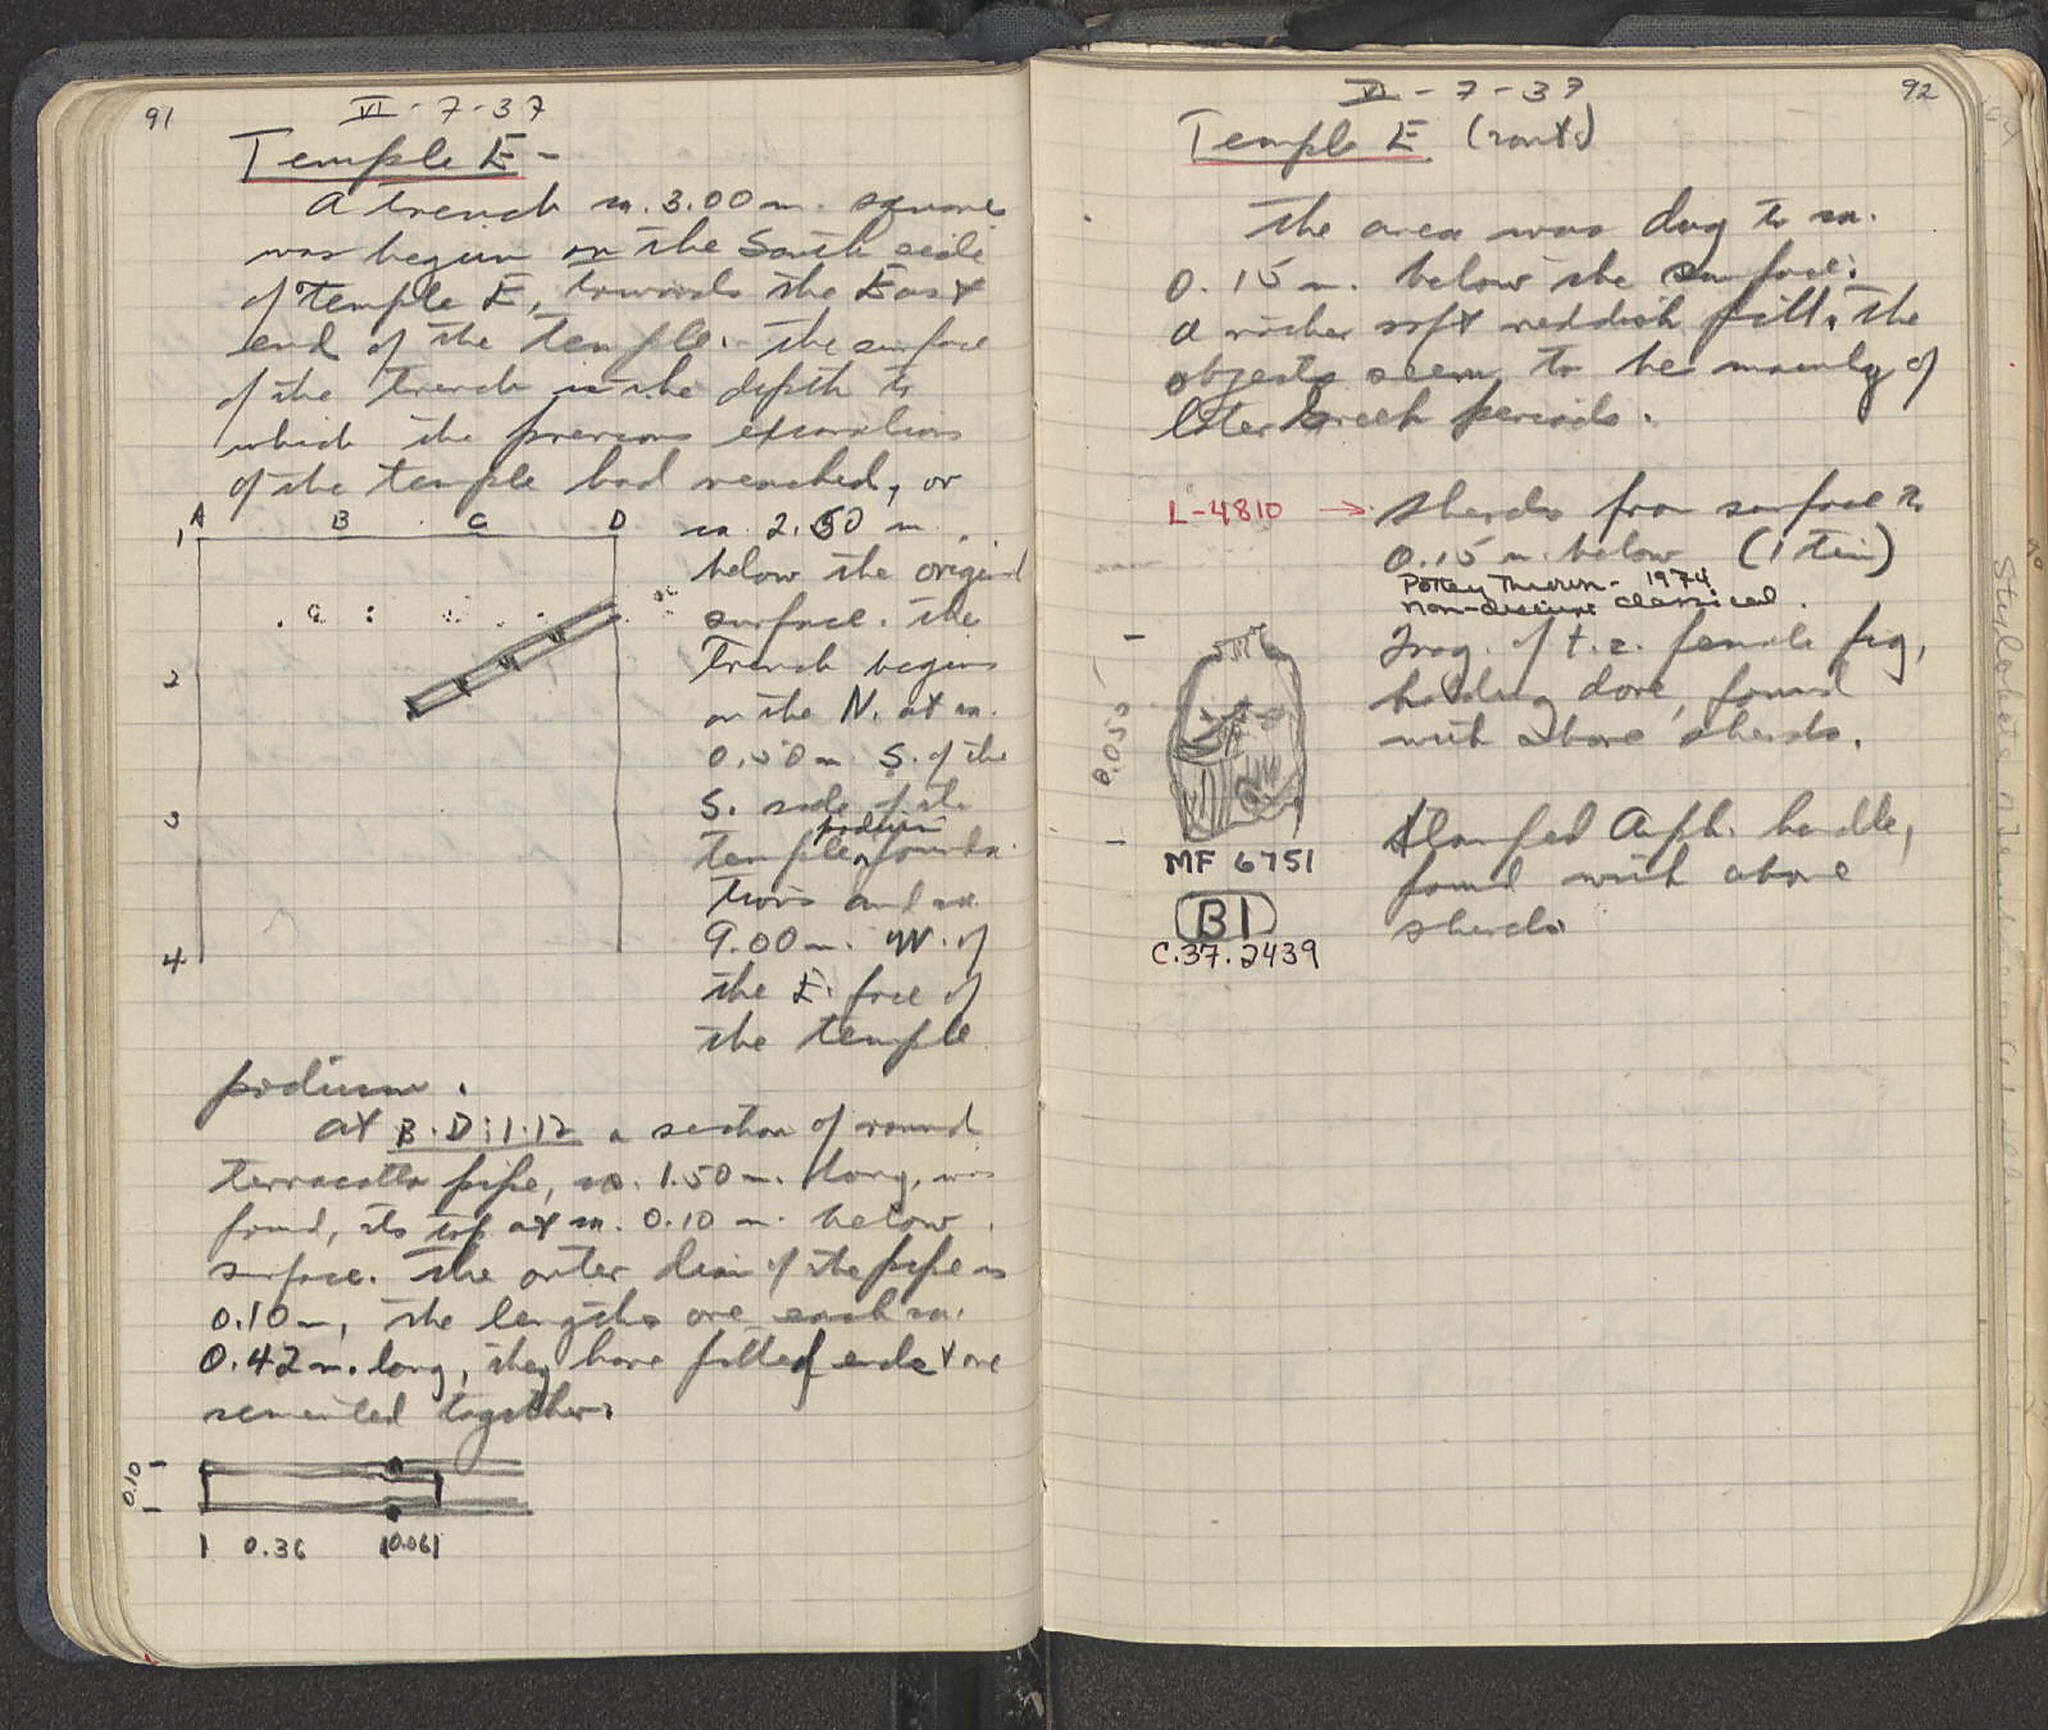 91
VI-7-37
Temple E -
A trench ca. 3.00 m. square
was begun on the South side
of temple E, towards the East
end of the temple. The surface
of the trench is the depth to
which the previous excavations
of the temple had reached, or
A B C D
1
2
3
4
ca. 2.50 m
below the original
surface. The
trench begins
on the N. at ca.
0.50 m S. of the
S. side of the
podium
temple founda
tions and ca.
9.00 m. W. of
the E. face of
the temple
podium.
At B-D:1-12 a section of round
terracotta pipe, ca. 1.50 m. long, was
found, its top at ca. 0.10 m. below
surface. The outer diam of the pipe is
0.10 m, the lengths are each ca.
0.42 m. long, they have fitted ends & are
cemented together.
0.10
0.36 0.06
92
VI-7-37
Temple E (cont.)
The area was dug to ca.
0.15 m. below the surface.
a rather soft reddish fill. The
objects seem to be mainly of
later Greek periods.
L-4810 → Sherds from surface to
0.15 m. below (1 tin)
Pottery Thrown - 1974
non-descript classical.
0.055
Frag. of t.c. female fig,
holding dove, found
with above sherds.
MF 6751
Stamped Amph. handle,
found with above
sherds
B1
C.37.2439